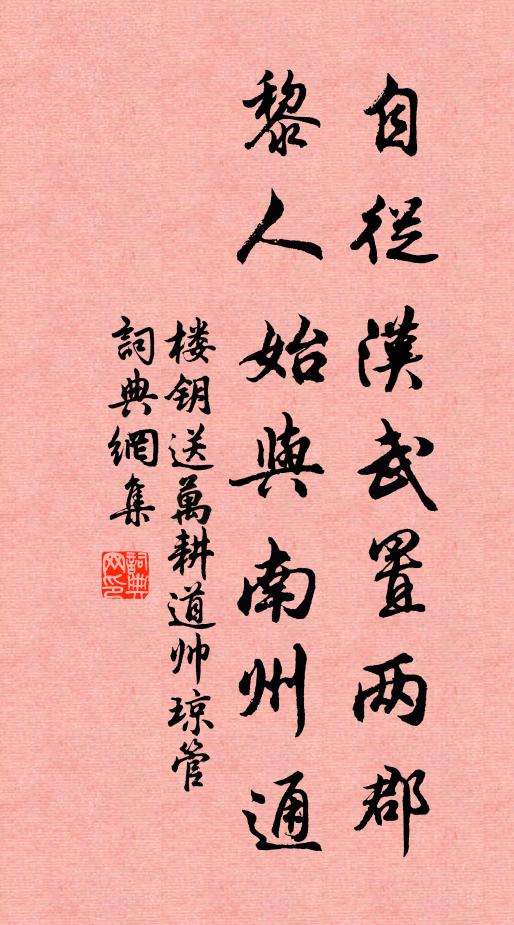 自從漢武置两郡
黎人始與南州通
楼钥送萬耕道帅琼管
詞典網集
詞典网印